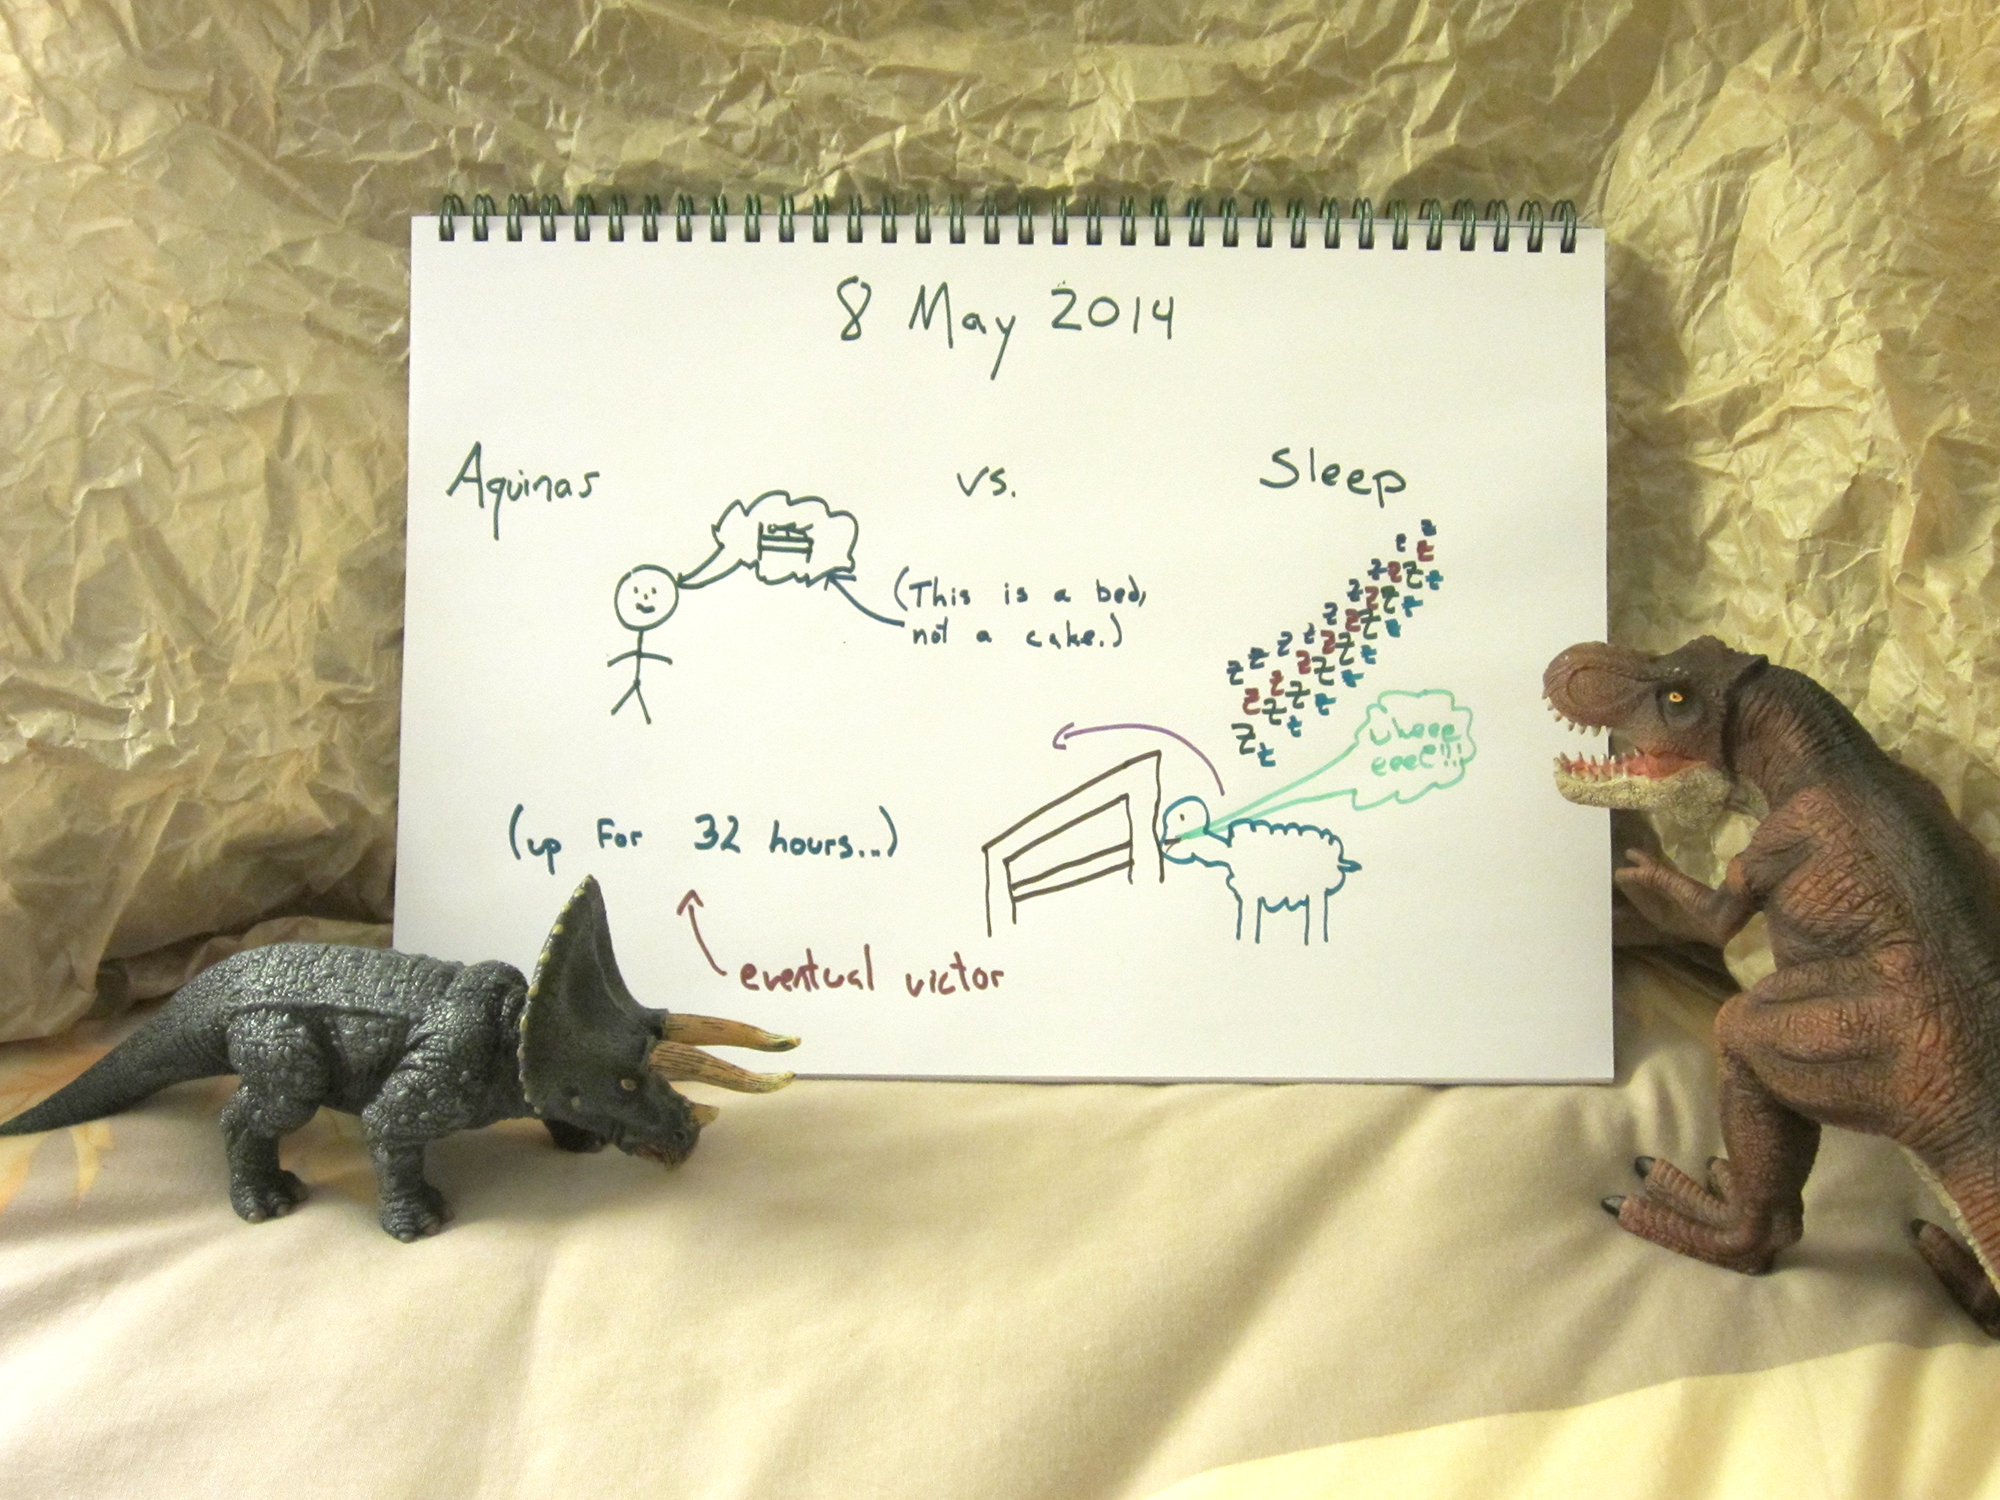 8 May 2014
Aquinas vs. Sleep
(This is a bed,
not a cake.)
z z z z z z z z z z z z z z z z z z z z z z z z z z z z z z z z z z z z z z
wheee
eeee!!!
(up for 32 hours...)
eventual victor